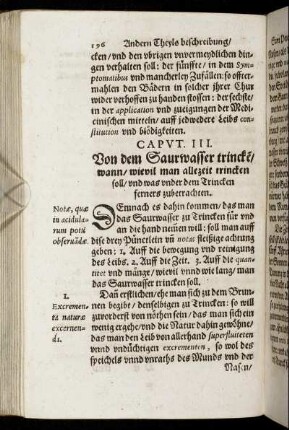 196 Andern Theyls beschreibung/
cken/ vnd den vbrigen vnvermeydlichen din-
gen verhalten soll: der fünffte/ in dem Sym-
ptomatibus vnd mancherley Zufällen: so offter-
mahlen den Bädern in solcher jhrer Chur
wider verhoffen zu handen stossen: der sechste/
in der application vnd zueigungen der Medi-
cinischen mitteln/ auff jedwedere Leibs con-
stitution vnd blödigkeiten.
CAPVT. III.
Von dem Saurwasser trincke͂/
wann/ wievil man allezeit trincken
soll/ vnd was vnder dem Trincken
ferners zubetrachten.
Notæ, quæ
in acidula-
rum potu
observandæ.
DEmnach es dahin kommen/ das man
das Saurwasser zu Trincken für vnd
an die hand nemen will: soll man auff
dise drey Püncterlein vñ notas fleissige achtung
geben: 1. Auff die bewegung vnd reinigung
des Leibs. 2. Auff die Zeit. 3. Auff die quan-
titet vnd mänge/ wievil vnnd wie lang/ man
das Saurwasser trincken soll.
1.
Excremen-
ta naturæ
excernen-
di.
Dan erstlichen/ ehe man sich zu dem Brun-
nen begibt/ denselbigen zu Trincken: so will
zuvorderst von nöthen sein/ das man sich ein
wenig ergehe/ vnd die Natur dahin gewöhne/
das man den Leib von allerhand superfluiteten
vnnd vndüchtigen excrementen, so wol des
speichels vnnd vnraths des Munds vnd der
Nasen/